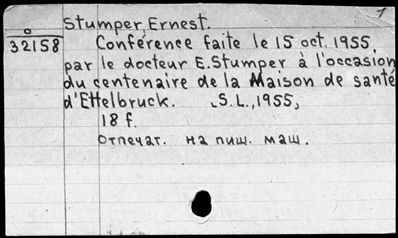 1
Stumper, Ernest.
0
32158
Conférence faite le 15 oct. 1955,
par le docteur E. Stumper à l'occasion
du centenaire de la Maison de santé
d'Ettelbruck. S.L., 1955,
18 f.
Отпечат. на пиш. маш.